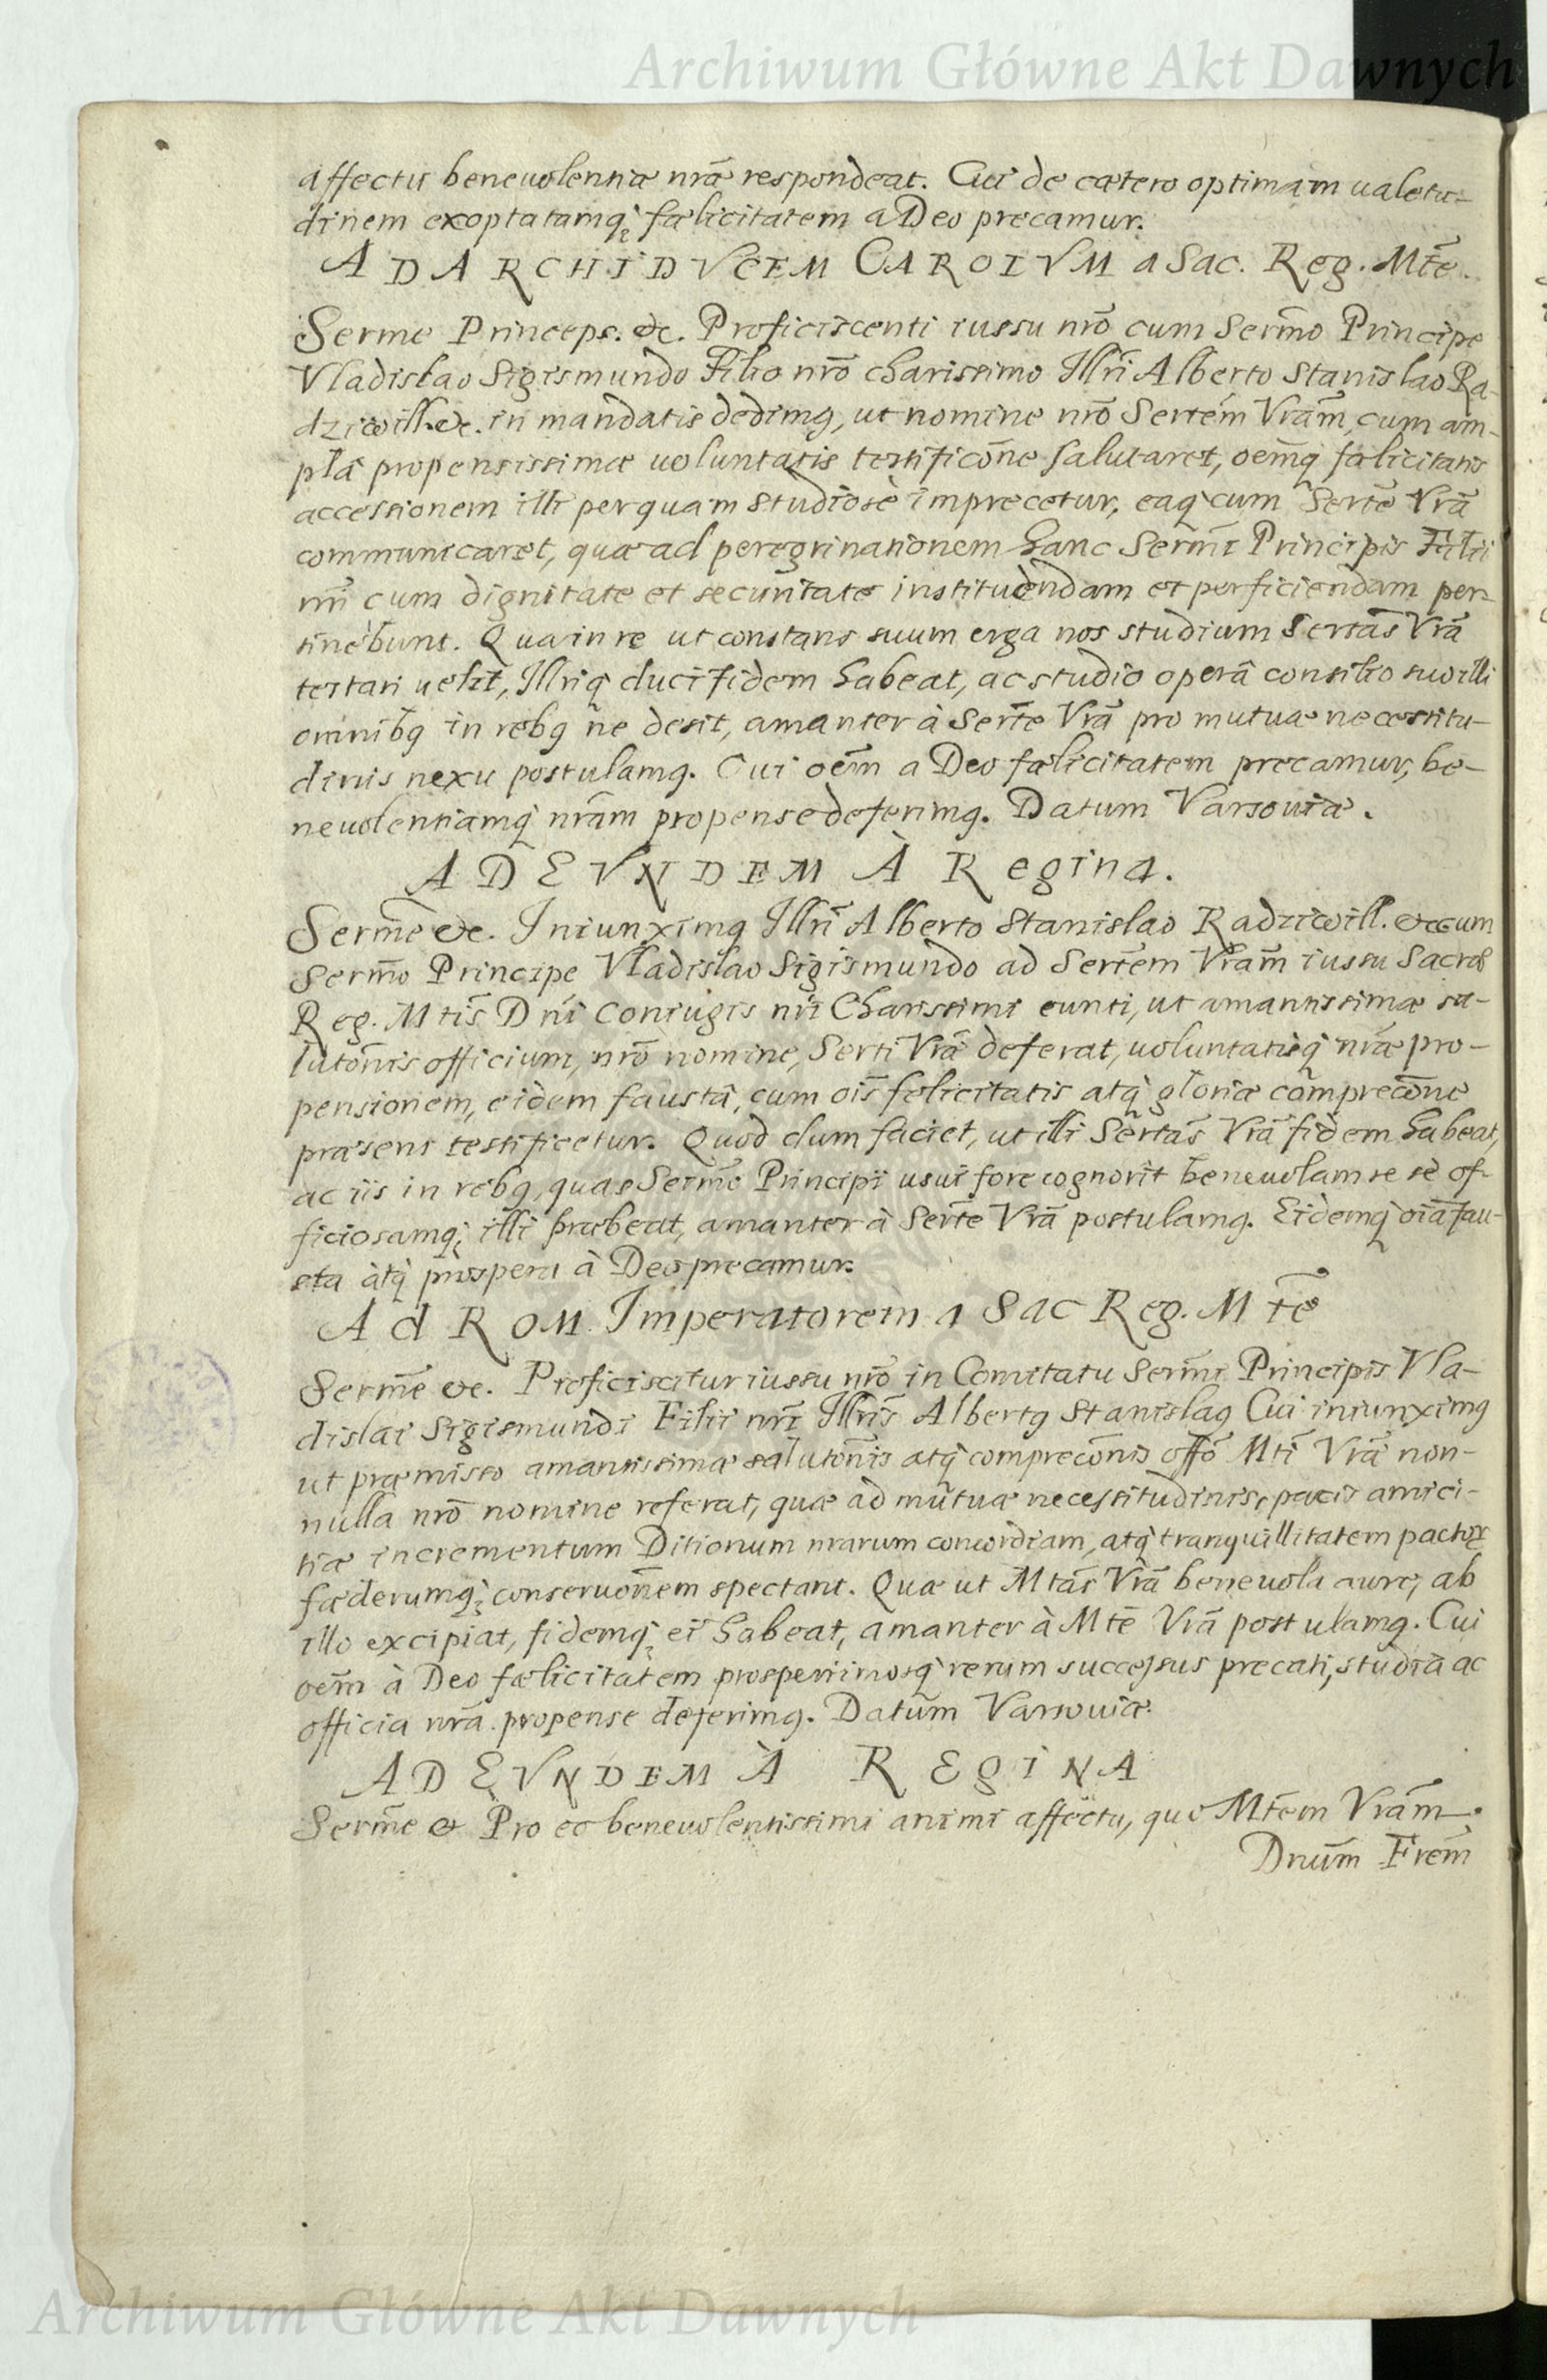 Archiwum Główne Akt Dawnych
affectui beneuolentiæ nrã respondeat. Cui de cætero optimam ualetu-
dinem exoptatamq; fælicitatem a Deo precamur.
AD ARCHIDVCEM CAROLVM a Sac. Reg. Mte.
Serme Princeps. &c. Proficiscenti iussu nrõ cum Sermo Principe
Vladislao Sigismundo Filio nrõ charissimo Illri Alberto Stanislao Ra-
dziwill. &c. in mandatis dedimq, ut nomine nrõ Sertem Vram, cum am-
plâ propensissimæ uoluntatis testificone salutaret, oemq fælicitatis
accessionem illi perquam studiosè imprecetur, eaq cum Serte Vrã
communicaret, quæ ad peregrinationem hanc Sermi Principis Filii
nri cum dignitate et securitate instituendam et perficiendam per-
tinebunt. Qua in re ut constans suum erga nos studium Sertas Vrã
testari uelit, Illriq duci fidem habeat, ac studio operâ consilio suo illi
omnibq in rebq ne desit, amanter à Serte Vrã pro mutuæ necessitu-
dinis nexu postulamq. Cui oem a Deo fælicitatem precamur, be-
neuolentiamq nram propense deferimq. Datum Varsouiæ.
AD EVNDEM À Regina.
Serme &c. Iniunximq Illri Alberto Stanislao Radziwill. &c cum
Sermo Principe Vladislao Sigismundo ad Sertem Vram iussu Sacræ
Reg. Mtis Dni Coniugis nri Charissimi eunti, ut amantissimæ sa-
lutonis officium, nrõ nomine, Serti Vræ deferat, uoluntatisq nræ pro-
pensionem, eidem faustâ, cum ois felicitatis atq gloriæ comprecone
præsens testificetur. Quod dum faciet, ut illi Sertas Vrã fidem habeat,
ac iis in rebq, quas Sermo Principi usui fore cognorit beneuolam se se of-
ficiosamq; illi præbeat, amanter à Serte Vrã postulamq. Eidemq oiã fau-
sta atq prospera à Deo precamur.
Ad ROM. Imperatorem a Sac Reg. Mte
Serme &c. Proficiscitur iussu nrõ in Comitatu Sermi Principis Vla-
dislai Sigismundi Filii nri Illris Albertq Stanislaq Cui iniunximq
ut præmisso amantissimæ salutonis atq compreconis offo Mti Vræ non-
nulla nrõ nomine referat, quæ ad mutuæ necessitudinis, pacis amici-
tiæ incrementum Ditionum nrarum concordiam, atq tranquillitatem pactoꝝ
fæderumq; conseruonem spectant. Quæ ut Mtas Vrã beneuola aure, ab
illo excipiat, fidemq; ei habeat, amanter à Mte Vrã postulamq. Cui
oem à Deo fælicitatem prosperrimosq rerum successus precati, studia ac
officia nrã propense deferimq. Datum Varsouiæ.
AD EVNDEM À REgiNA
Serme & Pro eo beneuolentissimi animi affectu, quo Mtem Vram
Dnum Frem
Archiwum Główne Akt Dawnych